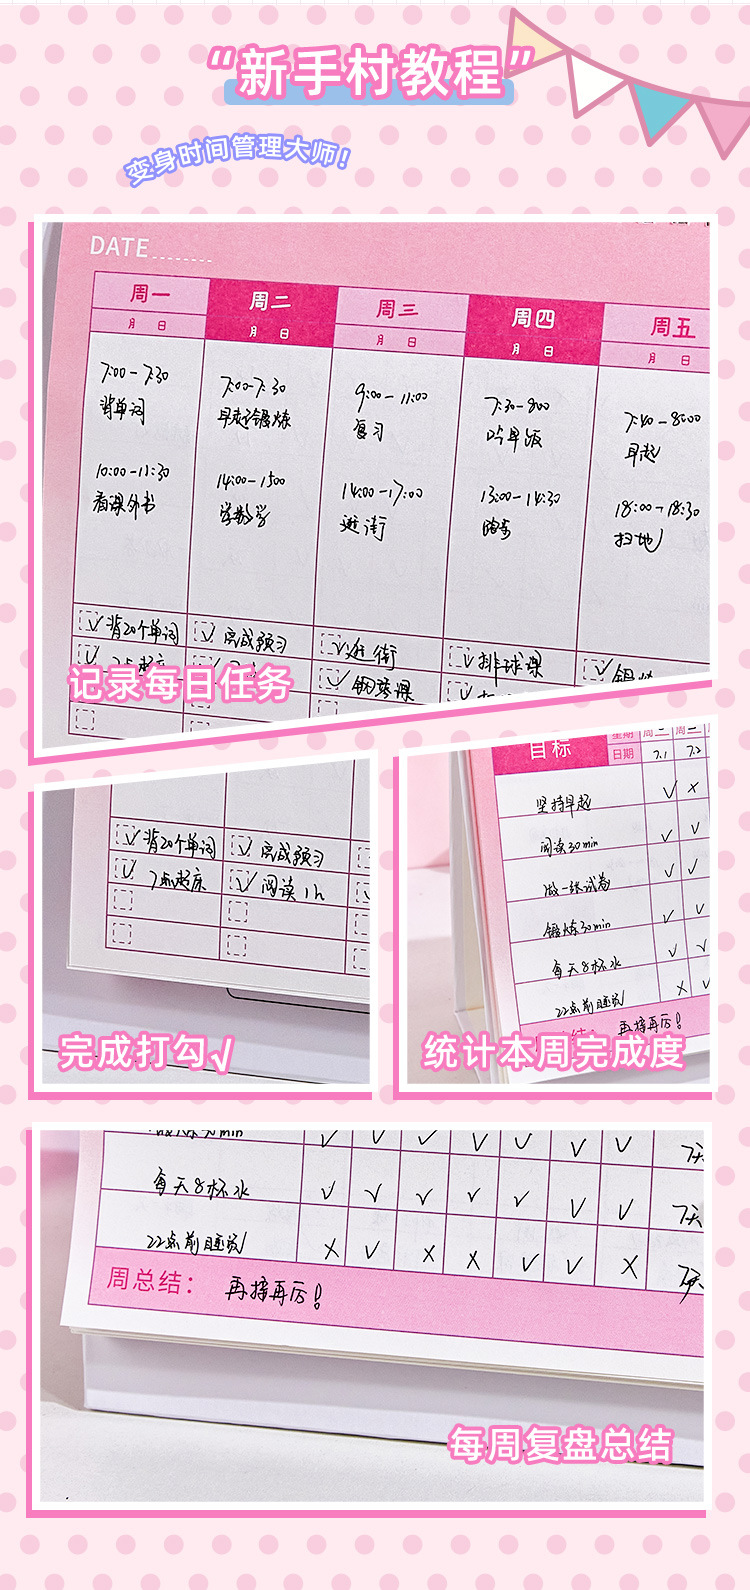 “新手村教程”
变身时间管理大师!
DATE
周一 周二 周三 周四 周五
月 日 月 日 月 日 月 日 月 日
7:00-7:30 7:00-7:30 9:00-11:00 7:30-8:00 7:40-8:00
背单词 早起锻炼 复习 吃早饭 早起
10:00-11:30 14:00-1500 14:00-17:00 13:00-14:30 18:00-18:30
看课外书 学数学 逛街 跑步 扫地
背20个单词 完成预习 逛街 排球课
7点起床 钢琴课
记录每日任务
背20个单词 完成预习
7点起床 阅读1h
完成打勾√
目标 星期 周一 周二
日期 7.1 7.2
坚持早起 √ ×
阅读30min √ √
做一张试卷 √ √
锻炼30min √ √
每天8杯水 √ √
22点前睡觉 × √
再接再厉!
统计本周完成度
√ √ √ √ √ √ √ 7天
每天8杯水 √ √ √ √ √ √ √ 7天
22点前睡觉 × √ × × √ √ ×
周总结: 再接再厉!
每周复盘总结